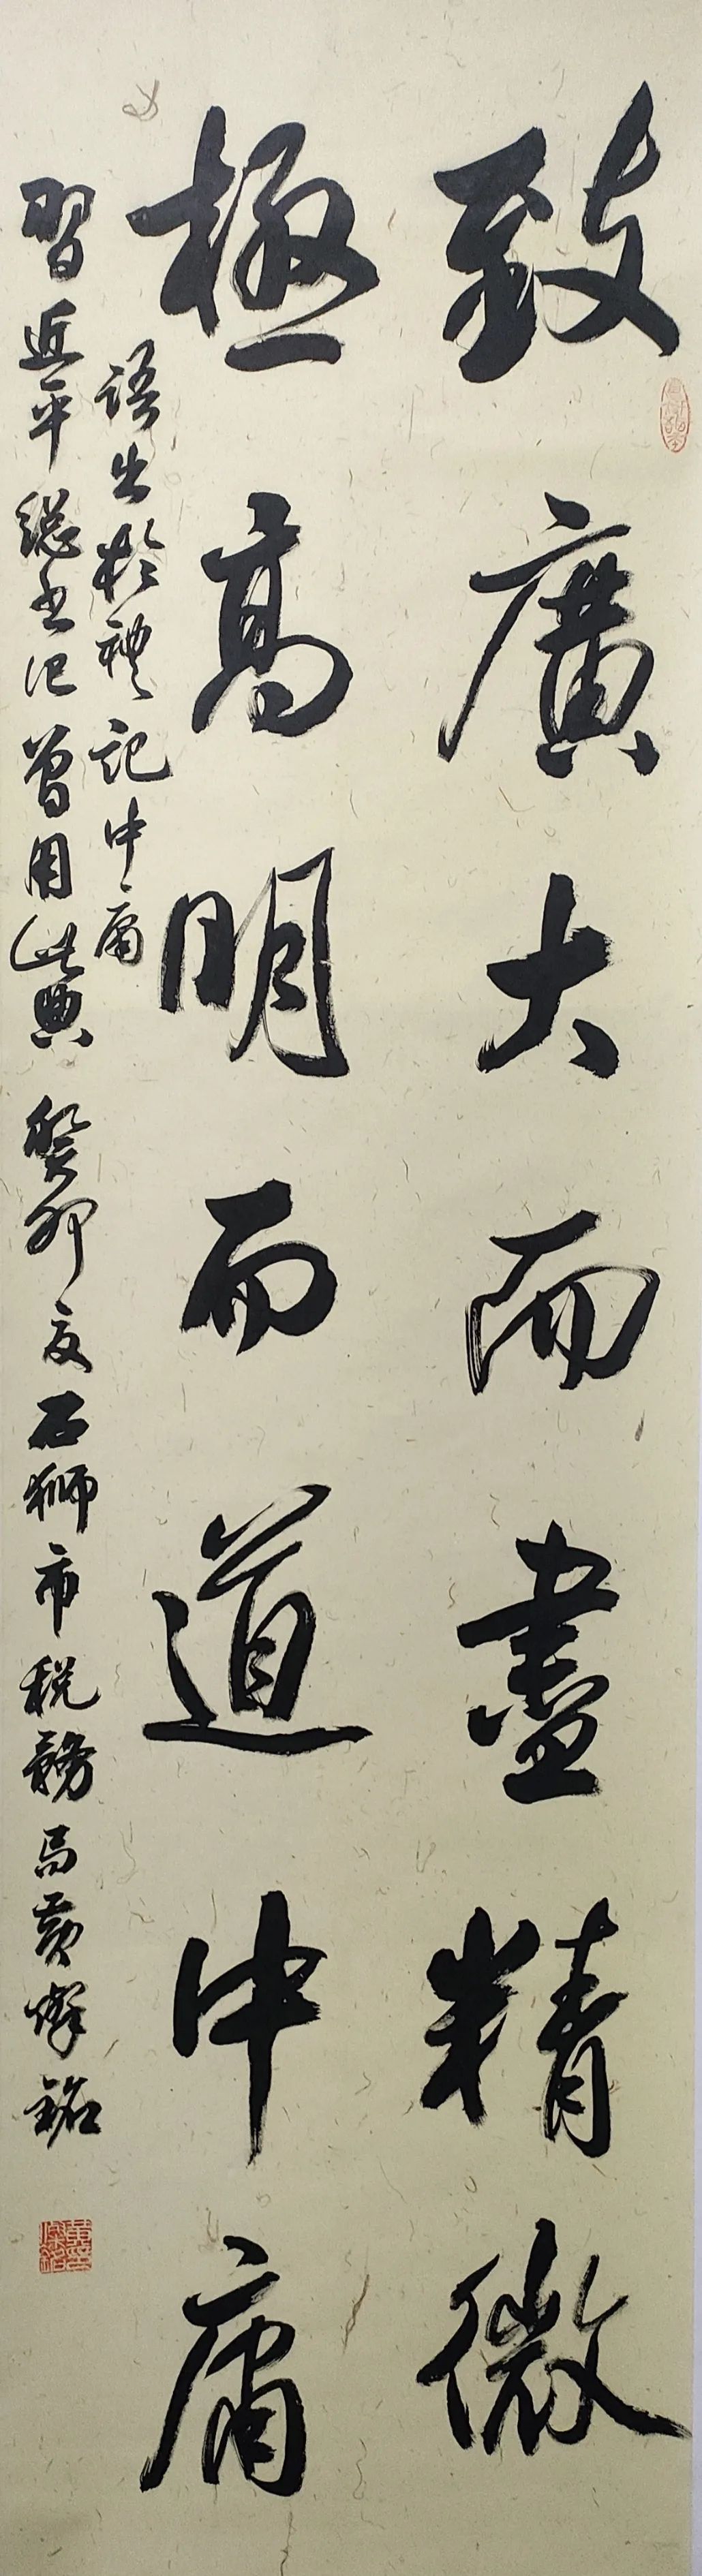 致廣大而盡精微
極高明而道中庸
語出於禮記中庸
習近平總書记曾用此典 癸卯夏石獅市稅務局黄燦銘